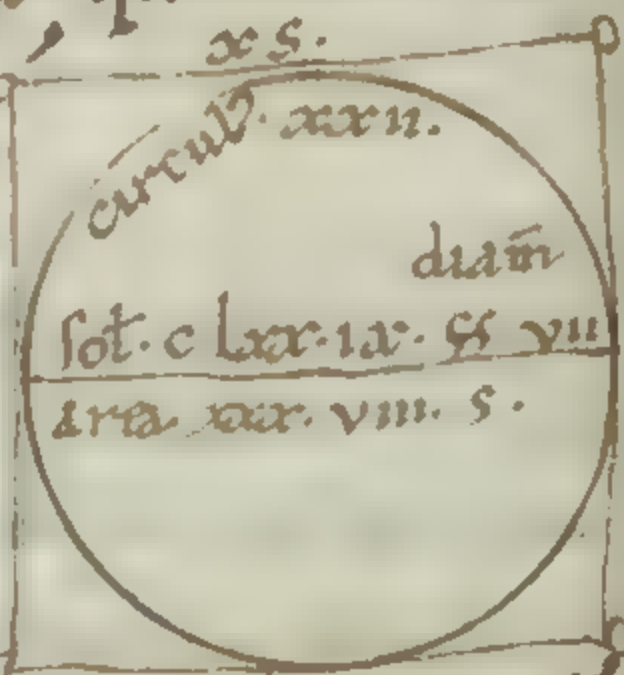 x s.
circul̄. xxii.
diam̄
sot̄. c lxx. ix. vii
area xxx. viii. s.